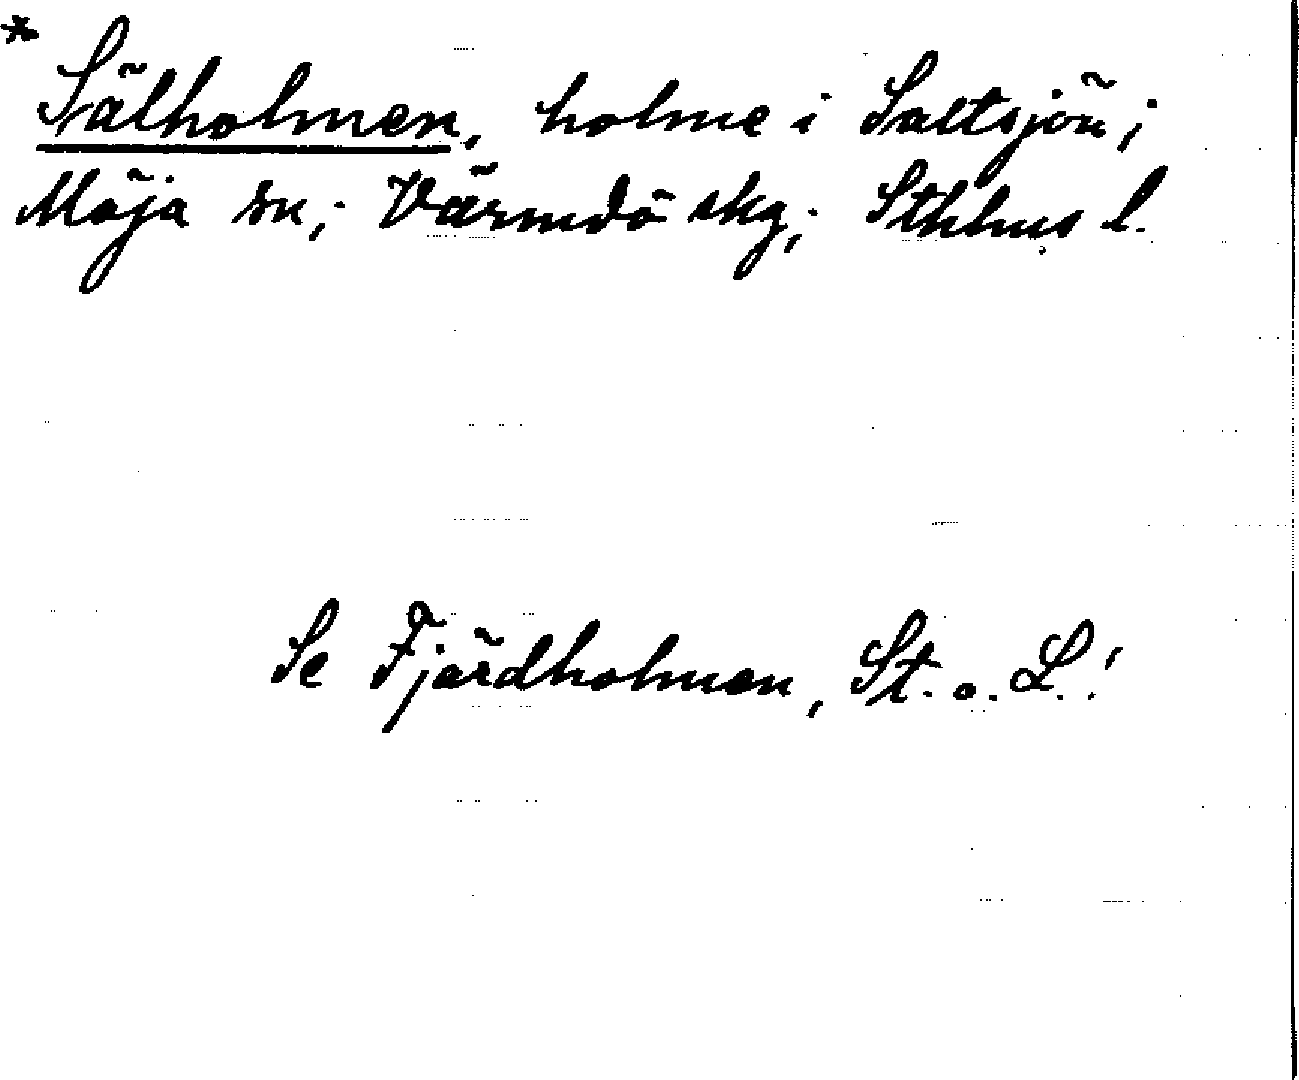 * Sälholmen, holme i Saltsjön;
Möja sn; Värmdö skg; Sthlms l.
Se Fjärdholmen, St. o. L.!